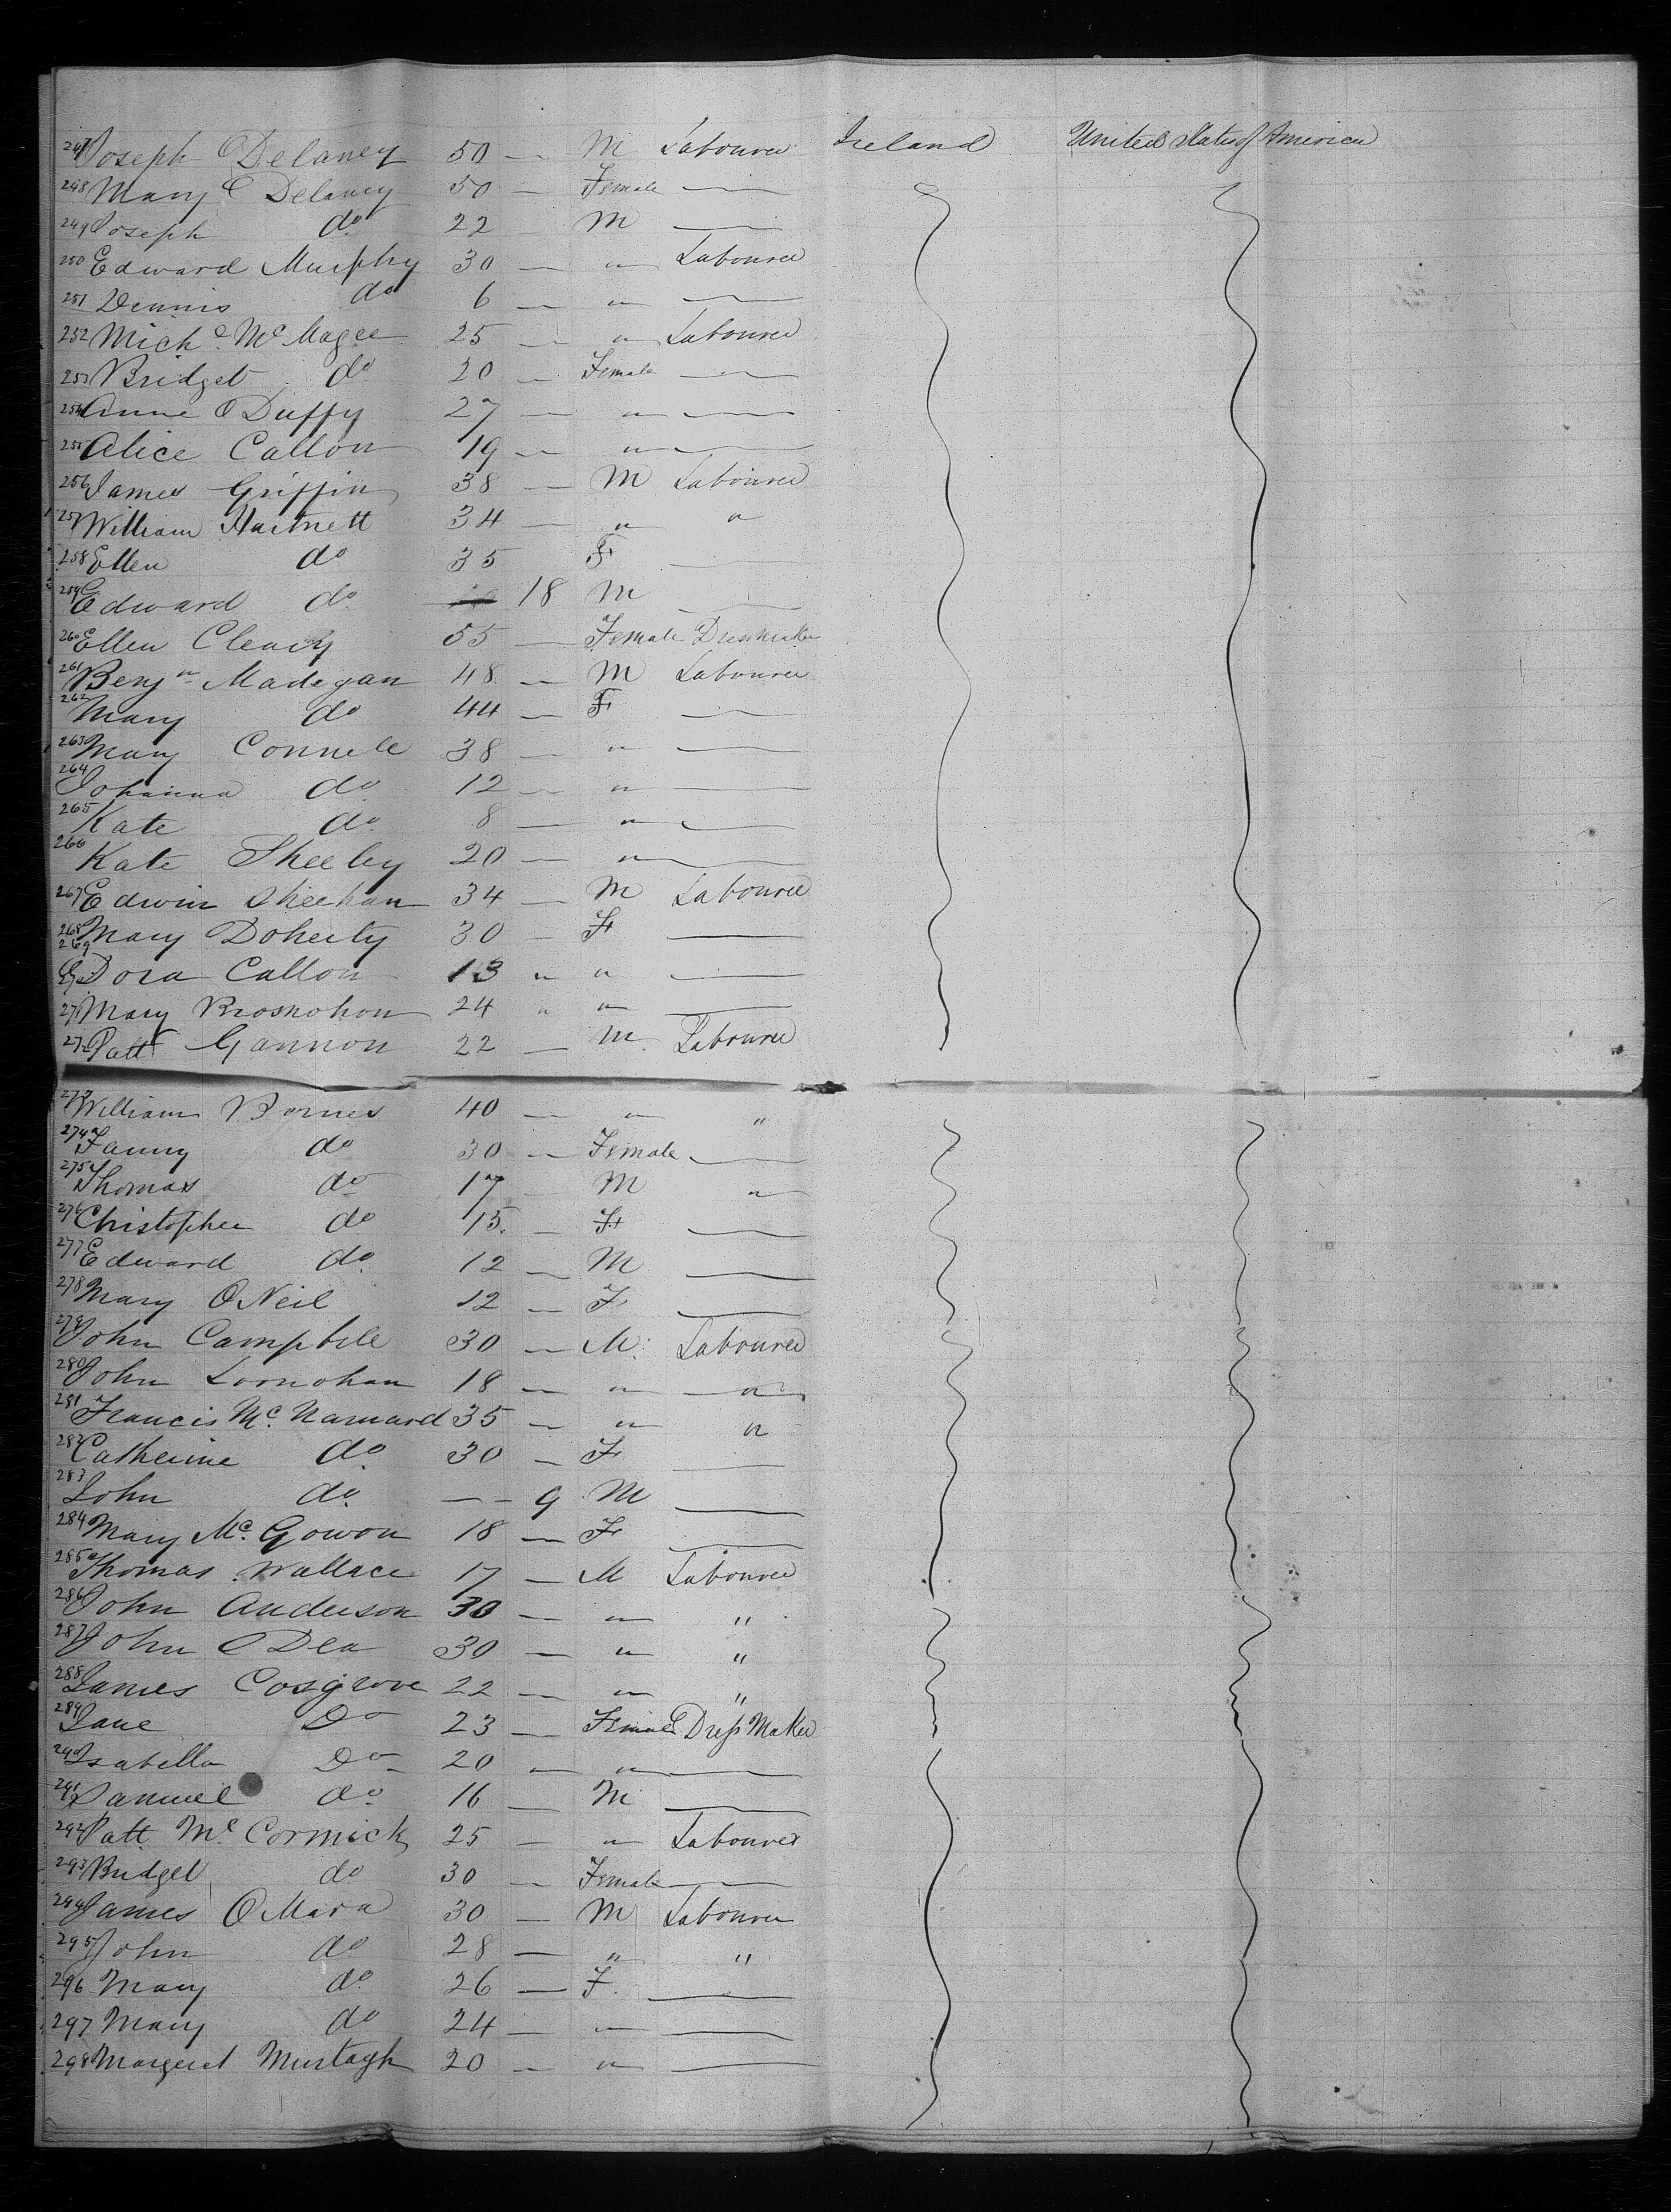 247 Joseph Delaney 50 — M Labourer Ireland United States of America
248 Mary Delaney 50 — Female —
249 Joseph do 22 M —
250 Edward Murphy 30 — " Labourer
251 Dennis do 6 — " —
252 Mich. McMagee 25 — " Labourer
253 Bridget do 20 — Female —
254 Anne Duffy 27 — " —
255 Alice Callon 19 — " —
256 James Griffin 38 — M Labourer
257 William Hartnett 34 — " "
258 Ellen do 35 F —
259 Edward do 18 M —
260 Ellen Cleary 55 — Female Dressmaker
261 Benjn Madegan 48 — M Labourer
262 Mary do 44 — F —
263 Mary Connell 38 — " —
264 Johanna do 12 — " —
265 Kate do 8 — " —
266 Kate Sheehy 20 — " —
267 Edwin Sheehan 34 — M Labourer
268 Mary Doherty 30 — F —
269
270 Dora Callon 13 " " —
271 Mary Brosnohon 24 " " —
272 Patt Gannon 22 — M Labourer
273 William Bornes 40 — " "
274 Fanny do 30 — Female —
275 Thomas do 17 M "
276 Christopher do 15 — F —
277 Edward do 12 — M —
278 Mary O Neil 12 — F —
279 John Campbell 30 — M Labourer
280 John Loonohan 18 — " "
281 Francis Mc Namard 35 — " "
282 Catherine do 30 — F —
283 John do — 9 M —
284 Mary Mc Gowon 18 — F —
285 Thomas Wallace 17 — M Labourer
286 John Anderson 30 — " "
287 John O Dea 30 — " "
288 James Cosgrove 22 — " "
289 Jane Do 23 — Female Dress Maker
290 Isabella Do 20 — " —
291 Samuel do 16 — M —
292 Patt Mc Cormick 25 — " Labourer
293 Bridget do 30 — Female —
294 James O Mara 30 — M Labourer
295 John do 28 — " "
296 Mary do 26 — F —
297 Mary do 24 — " —
298 Margeret Murtagh 20 — " —